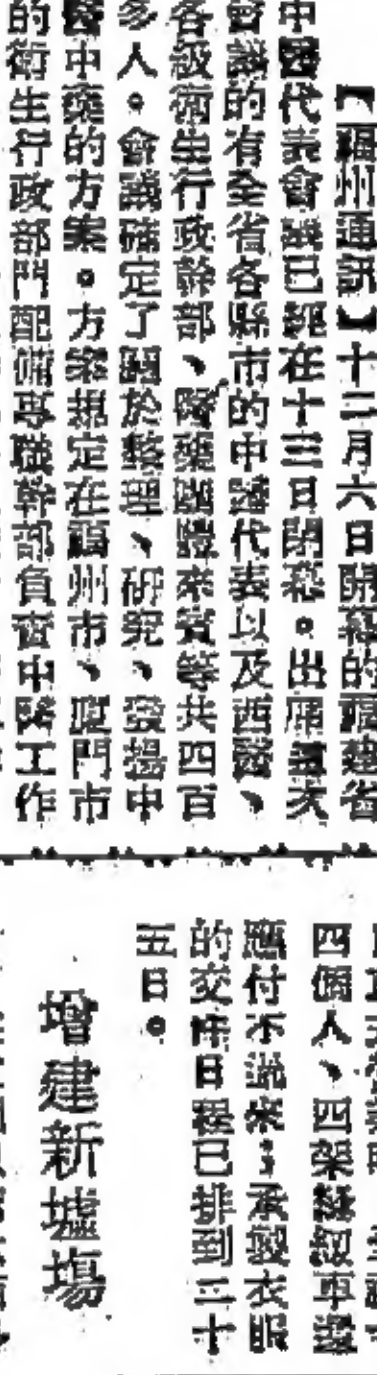 【福州通訊】十二月六日開幕的福建省
中醫代表會議已經在十三日閉幕。出席這次
會議的有全省各縣市的中醫代表以及西醫、
各級衛生行政幹部、醫藥團體來賓等共四百
多人。會議確定了關於整理、研究、發揚中
醫中藥的方案。方案規定在福州市、廈門市
的衛生行政部門配備專職幹部負責中醫工作
四個人、四架縫紉車還
應付不過來；承製衣服
的交件日程已排到二十
五日。
增建新墟場